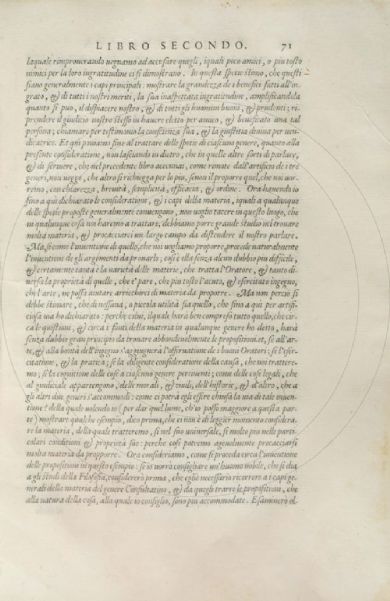 LIBRO SECONDO. 71
laquale rimproverando vegnamo ad accusare quegli, iquali poco amici, o piu tosto
nimici per la loro ingratitudine ci si dimostrano. In questa spetie sono, che questi
siano generalmente i capi principali: mostrare la grandezza de i benefici fatti all'in
grato, & di tutti i nostri meriti, la sua inaspettata ingratitudine, amplificandola
quanto si puo, il dispiacere nostro, & di tutti gli huomini buoni, & prudenti; ri-
prendere il giudicio nostro stesso in havere eletto per amico, & beneficato una tal
persona; chiamare per testimonio la conscienza sua, & la giustitia divina per ven-
dicatrice. Et qui poniamo fine al trattare delle spetie di ciascun genere, quanto alla
presente consideratione, non lasciando in dietro, che in quelle altre sorti di parlare,
& di scrivere, che nel precedente libro accennai, come
genere, non veggo, che altro si richiegga per lo piu, senon il proporre quel, che noi vor
remo, con chiarezza, brevità, semplicità, efficacia, & ordine. Ora havendo io
fino a qui dichiarato le considerationi, & i capi della materia, iquali a qualunque
delle spetie proposte generalmente convengono, non voglio tacere in questo luogo, che
in qualunque cosa noi haremo a trattare, debbiamo porre grande studio nel trovare
molta materia, & procacciarci un largo campo da distendere il nostro parlare.
Ma, si come l'inventione di quello, che noi vogliamo proporre procede naturalmente
l'inventione de gli argomenti da provarlo; cosi è ella senza alcun dubbio piu difficile,
& certamente tanta è la varietà delle materie, che tratta l'Oratore, & tanto di-
versa la proprietà di quelle, che è pare, che piu tosto l'acuto, & esercitato ingegno,
che l'arte, ne possa aiutare arricchirci di materia da proporre. Ma non perciò si
debbe stimare, che di nessuna, o piccola utilità sia quello, che fino a qui per artifi-
ciosa via ho dichiarato: perche colui, ilquale harà ben compreso tutto quello, che cir-
ca le quistioni, & circa i fonti della materia in qualunque genere ho detto, harà
senza dubbio gran principio da trovare abbondevolmente le propositioni, et, se all'ar-
te, & alla bontà dell'ingegno s'aggiugnerà l'osservatione de i buoni Oratori; se l'eser-
citatione, & la pratica; se la diligente consideratione della causa, che noi tratte-
remo; se la cognitione delle cose a ciascun genere pertinenti; come delle cose legali, che
al giudiciale appartengono, delle morali, & civili, dell'historie, & d'altro, che a
gli altri due generi s'accommodi: come ci potrà egli essere chiusa la via di tale inven-
tione? della quale volendo io (per dar quel lume, ch'io posso maggiore a questa par-
te) mostrare qualche esempio, dico prima, che ei non è di leggier momento considera-
re la materia, della quale trattaremo, si nel suo universale, si molto piu nelle parti-
colari conditioni & proprietà sue: perche cosi potremo agevolmente procacciarci
molta materia da proporre. Ora consideriamo, come si proceda circa l'inventione
delle propositioni in questo esempio: se io vorrò consigliare un huomo nobile, che si dia
a gli studi della Filosofia, considererò prima, che egli è necessario ricorrere a i capi ge-
nerali della materia del genere Consultativo, & da quegli trarre le propositioni, che
alla natura della cosa, alla quale io consiglio, sono piu accommodate. Esaminerò el-